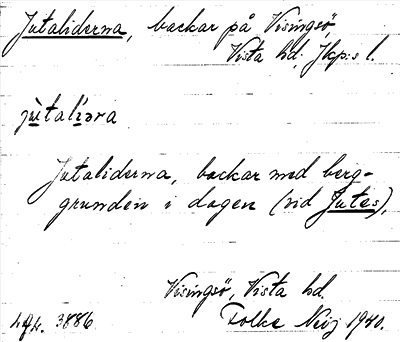 Jutaliderna, backar på Visingsö,
Vista hd, Jkp:s l.
jùtalíəra
Jutaliderna, backar med berg-
grunden i dagen (vid Jutes),
Visingsö, Vista hd.
3886 Folke Neij 1940.